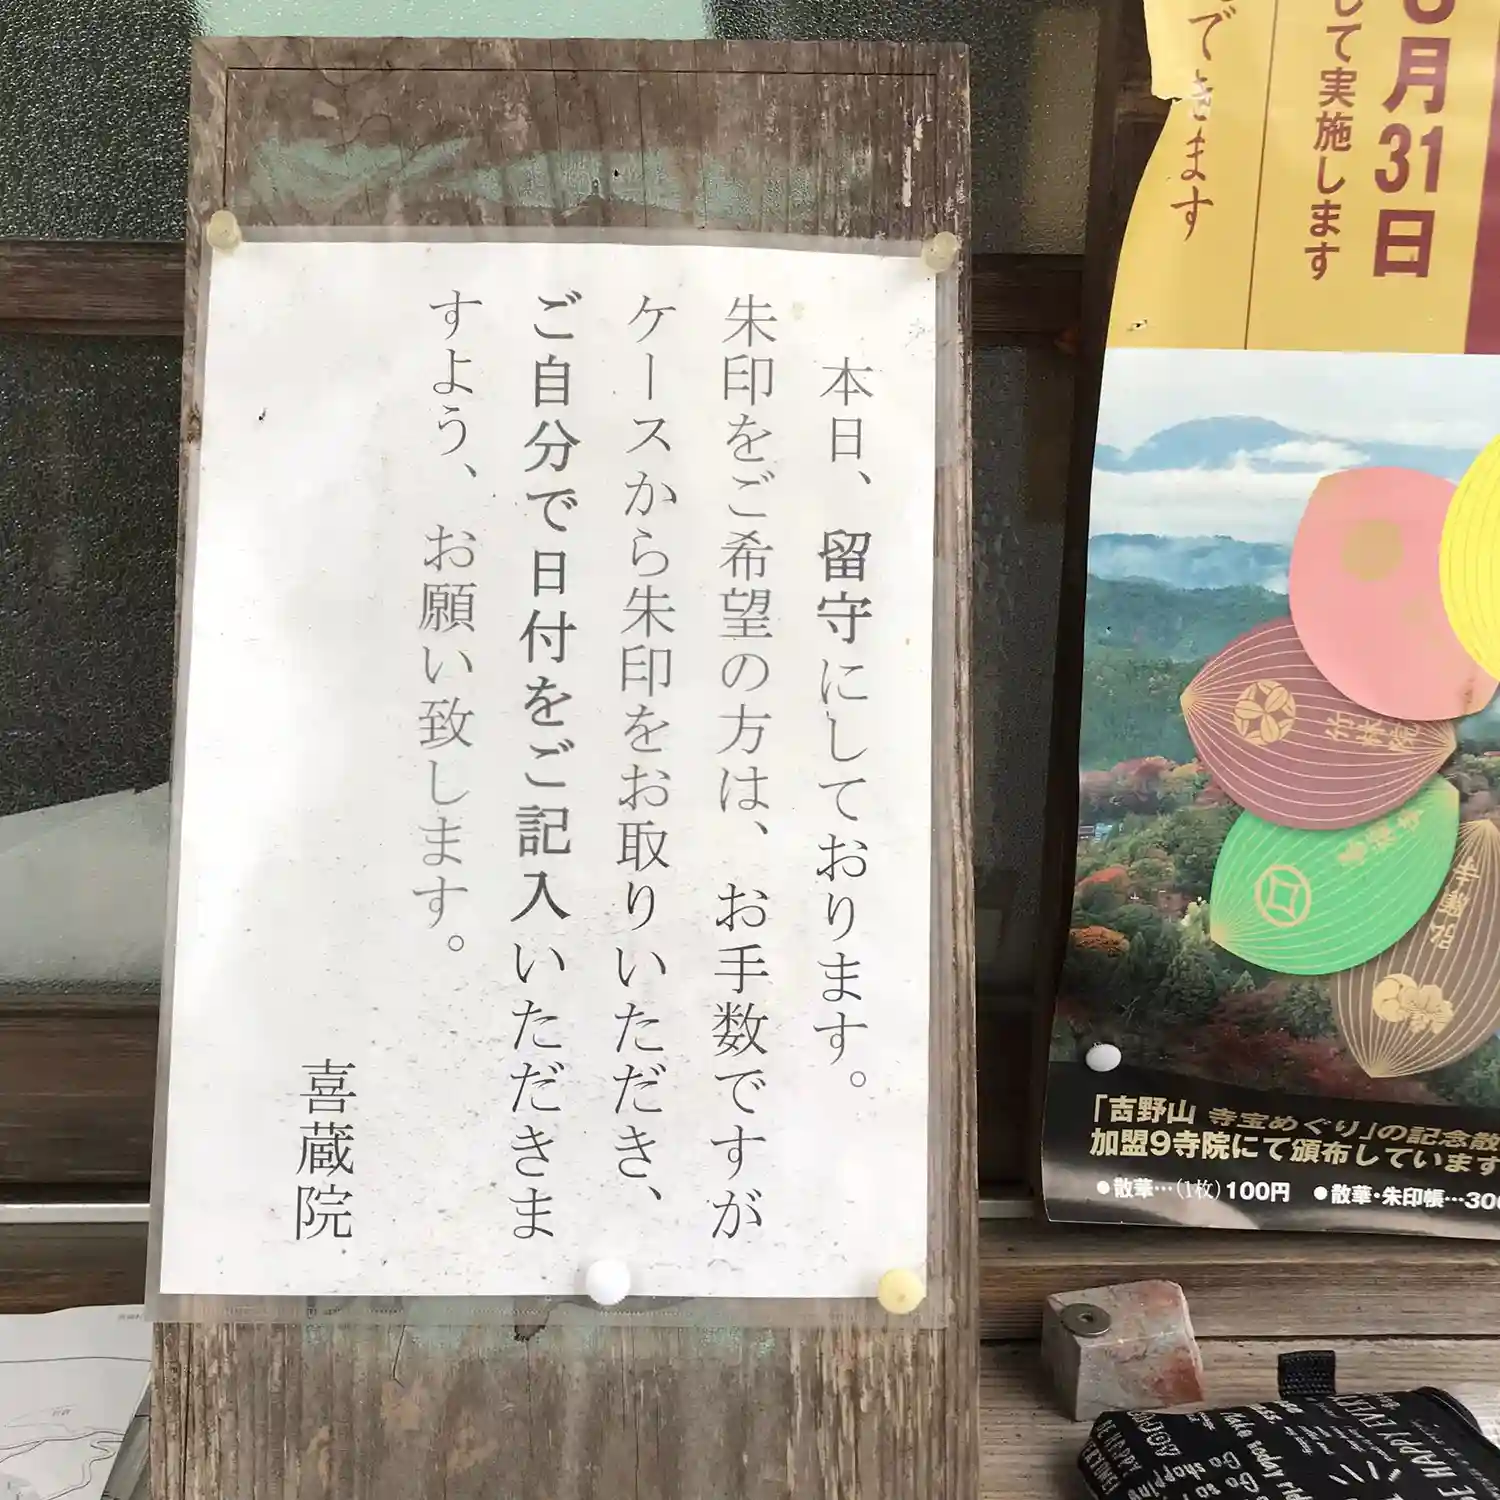 本日、留守にしております。
朱印をご希望の方は、お手数ですが
ケースから朱印をお取りいただき、
ご自分で日付をご記入いただきま
すよう、お願い致します。
喜蔵院
月31日
して実施します
できます
竹林院
「吉野山 寺宝めぐり」の記念散
加盟9寺院にて頒布しています
●散華…(1枚)100円 ●散華・朱印帳…300